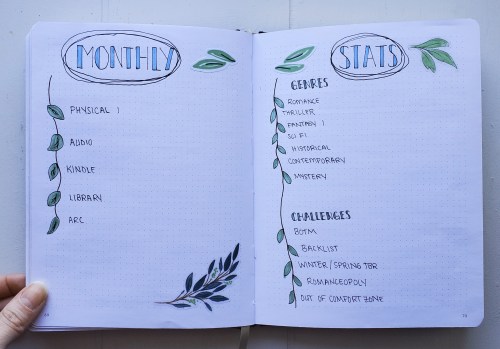 MONTHLY
PHYSICAL 1
AUDIO
KINDLE
LIBRARY
ARC
STATS
GENRES
ROMANCE
THRILLER
FANTASY 1
SCI FI
HISTORICAL
CONTEMPORARY
MYSTERY
CHALLENGES
BOTM
BACKLIST
WINTER/SPRING TBR
ROMANCEOPOLY
OUT OF COMFORT ZONE